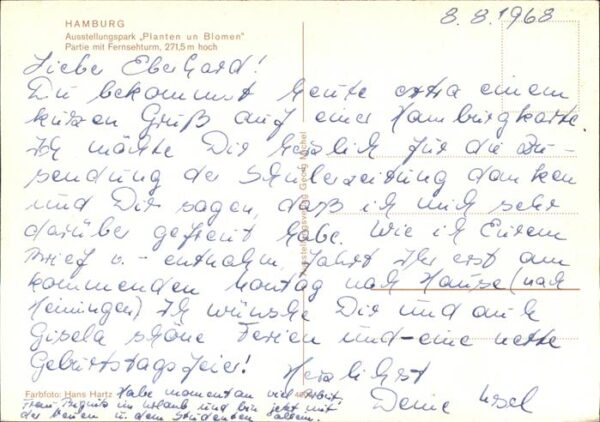 HAMBURG
Ausstellungspark „Planten un Blomen"
Partie mit Fernsehturm, 271,5 m hoch
8.8.1968
Lieber Eberhard!
Du bekommst heute extra einen
kurzen Gruß auf einer Hamburgkarte.
Ich möchte Dir herzlich für die Zu-
sendung der Schülerzeitung danken
und Dir sagen, daß ich mich sehr
darüber gefreut habe. Wie ich Eurem
Brief entnahm, fahrt Ihr erst am
kommenden Montag nach Hause (nach
Heiningen) Ich wünsche Dir und auch
Gisela schöne Ferien und eine nette
Geburtstagsfeier!
Herzlichst
Deine Ursel
Farbfoto: Hans Hartz
Habe momentan viel Arbeit,
Frau im Urlaub und bin jetzt mit
der neuen u. dem Studenten allein.
Ausstellungsverlag Georg Michel